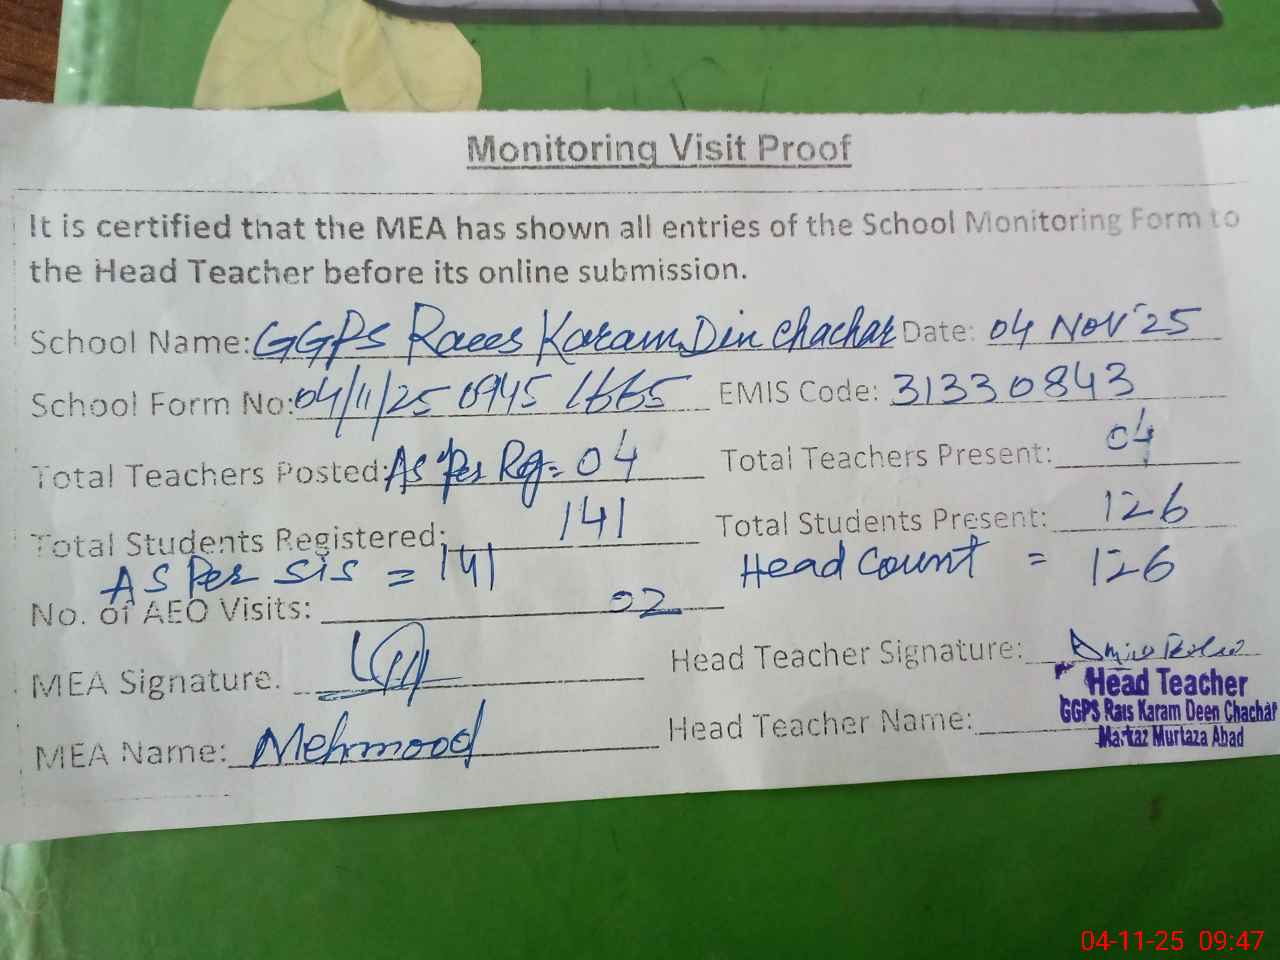 Monitoring Visit Proof
It is certified that the MEA has shown all entries of the School Monitoring Form to
the Head Teacher before its online submission.
School Name: GGPS Raees Karam Din Chachar Date: 04 Nov'25
School Form No: 04/11/25 0945 1665 EMIS Code: 31330843
Total Teachers Posted: As Per Reg = 04 Total Teachers Present: 04
Total Students Registered: 141 Total Students Present: 126
As Per SIS = 141 Head Count = 126
No. of AEO Visits: 02
MEA Signature. Head Teacher Signature:
MEA Name: Mehmood Head Teacher Name:
Head Teacher
GGPS Rais Karam Deen Chachar
Murtaza Abad
04-11-25 09:47